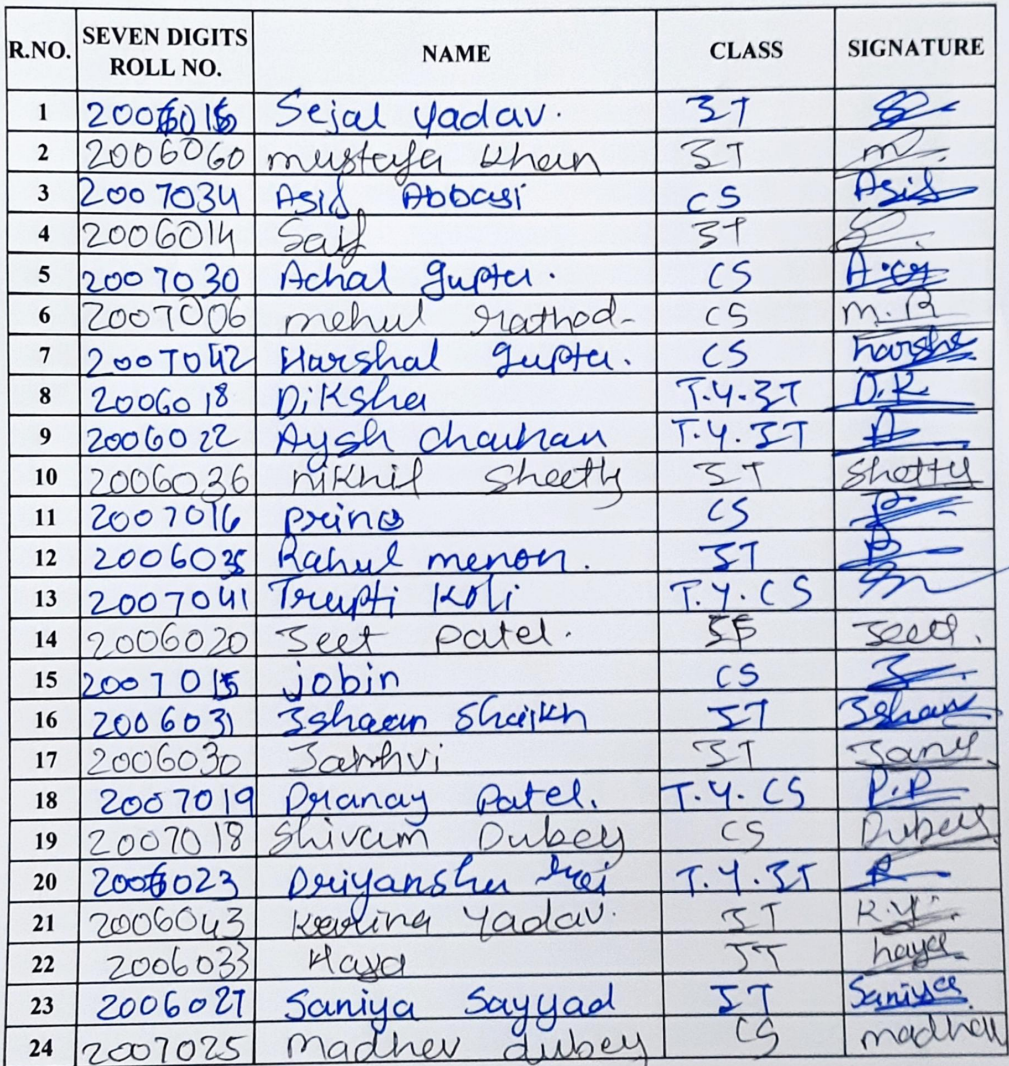 R.NO. SEVEN DIGITS ROLL NO. NAME CLASS SIGNATURE
1 2006016 Sejal Yadav. IT
2 2006060 mustafa Khan IT m
3 2007034 Asif Abbasi CS Asif
4 2006014 Saif IT S
5 2007030 Achal Gupta. CS A.G
6 2007006 mehul rathod- CS m.R
7 2007042 Harshal Gupta. CS harsha
8 2006018 Diksha T.Y.IT D.K
9 2006022 Aysh Chauhan T.Y.IT A
10 2006036 nikhil Sheetty IT Shetty
11 2007016 prino CS P
12 2006035 Rahul menon. IT R
13 2007041 Trupti Koli T.Y.CS
14 2006020 Jeet patel. IT Jeet.
15 2007015 jobin CS J
16 2006031 Ishaan Shaikh IT Ishaan
17 2006030 Janhvi IT Janv
18 2007019 Pranay Patel. T.Y.CS P.P
19 2007018 Shivam Dubey CS Dubey
20 2006023 Priyanshu rai T.Y.IT P
21 2006043 Karina Yadav. IT K.Y.
22 2006033 Haya IT haya
23 2006027 Saniya Sayyad IT Saniya
24 2007025 madhav dubey CS madhav